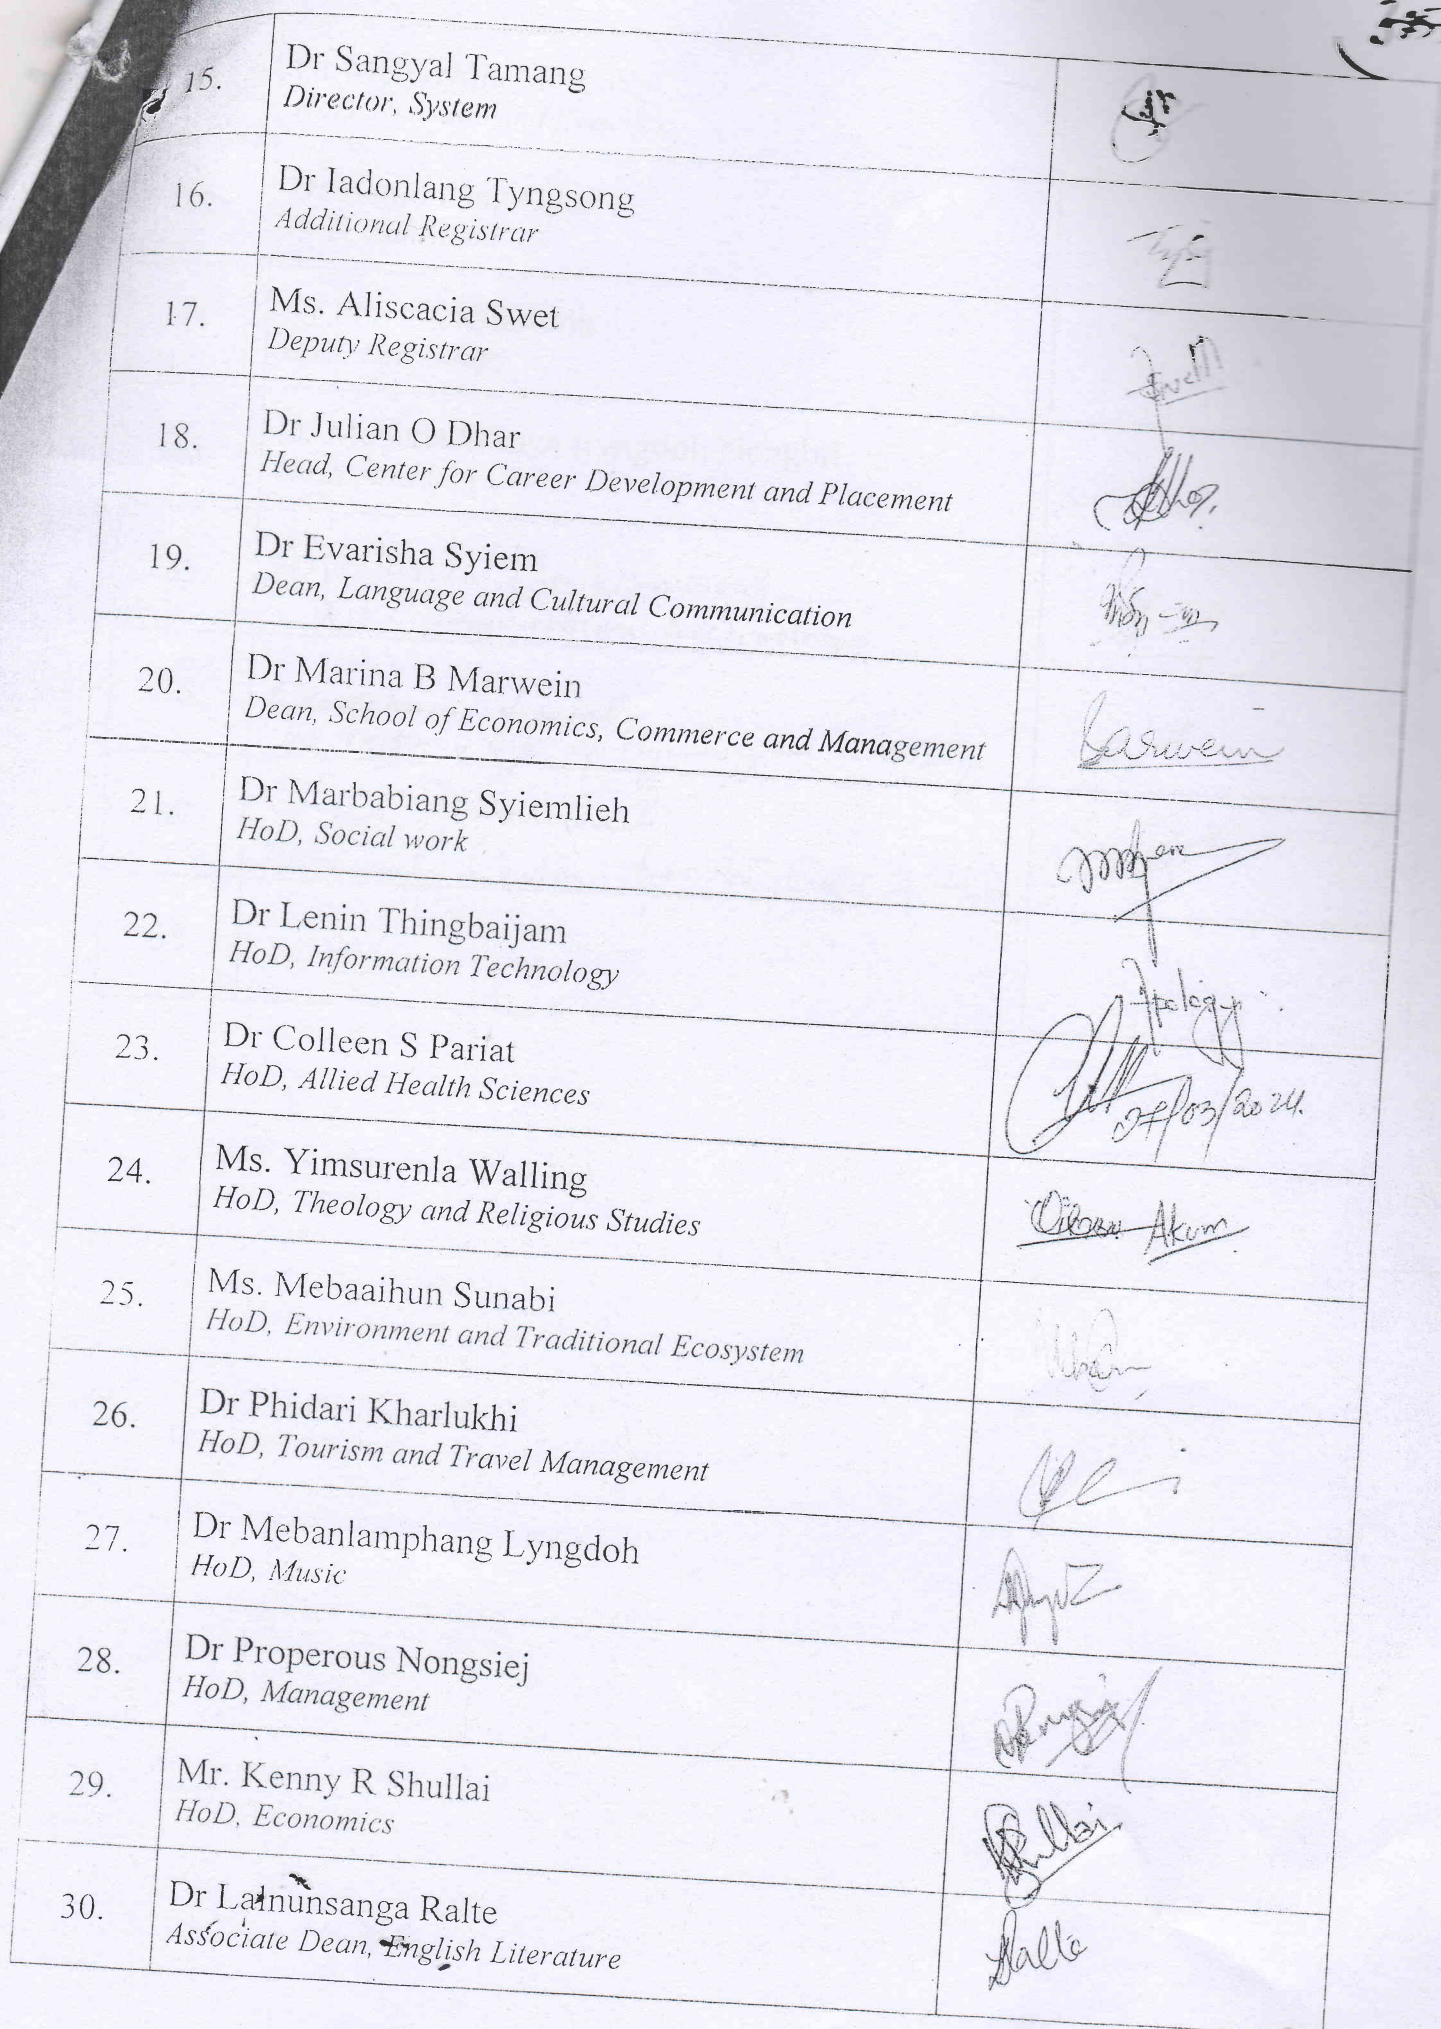 15.
Dr Sangyal Tamang
Director, System
16.
Dr Iadonlang Tyngsong
Additional Registrar
17.
Ms. Aliscacia Swet
Deputy Registrar
18.
Dr Julian O Dhar
Head, Center for Career Development and Placement
19.
Dr Evarisha Syiem
Dean, Language and Cultural Communication
20.
Dr Marina B Marwein
Dean, School of Economics, Commerce and Management
21.
Dr Marbabiang Syiemlieh
HoD, Social work
22.
Dr Lenin Thingbaijam
HoD, Information Technology
Apology
23.
Dr Colleen S Pariat
HoD, Allied Health Sciences
27/03/2024.
24.
Ms. Yimsurenla Walling
HoD, Theology and Religious Studies
Akum
25.
Ms. Mebaaihun Sunabi
HoD, Environment and Traditional Ecosystem
26.
Dr Phidari Kharlukhi
HoD, Tourism and Travel Management
27.
Dr Mebanlamphang Lyngdoh
HoD, Music
28.
Dr Properous Nongsiej
HoD, Management
29.
Mr. Kenny R Shullai
HoD, Economics
30.
Dr Lalnunsanga Ralte
Associate Dean, English Literature
Ralte